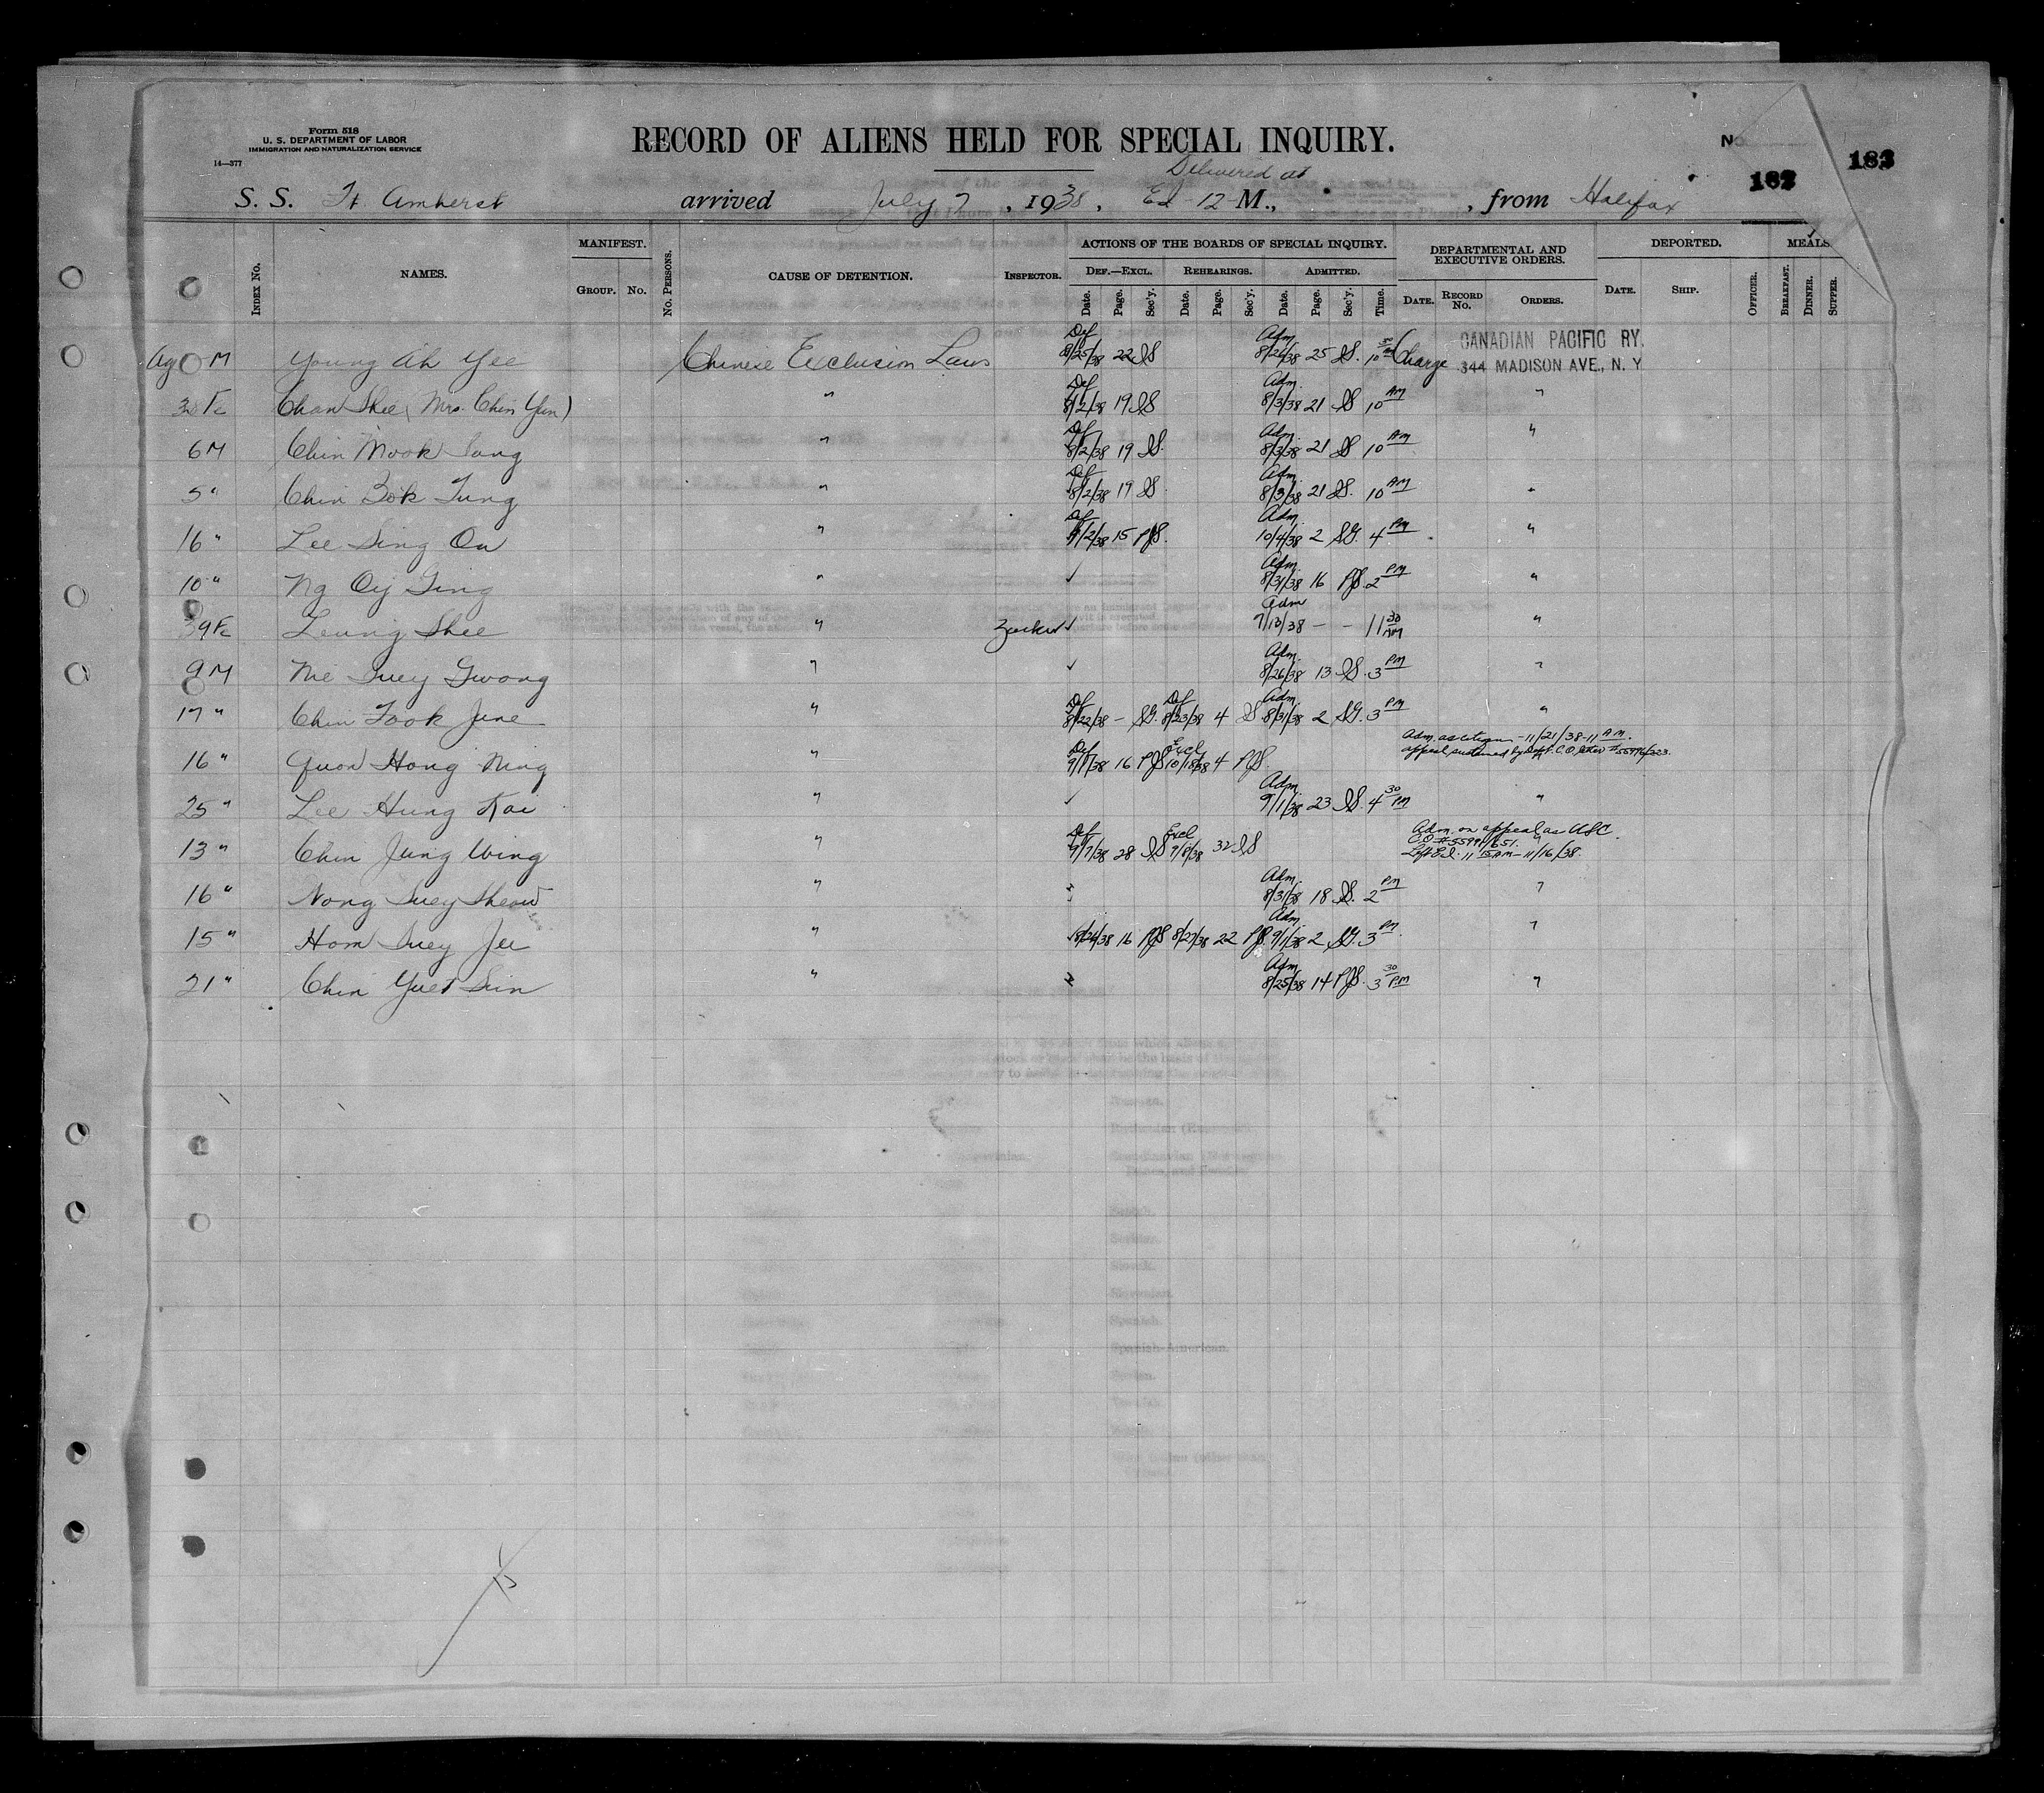 Form 518
U. S. DEPARTMENT OF LABOR
IMMIGRATION AND NATURALIZATION SERVICE
14—377
RECORD OF ALIENS HELD FOR SPECIAL INQUIRY.
No.
182
183
Delivered at
S. S. Ft. Amherst arrived July 7, 1938, EI-12-M., , from Halifax
INDEX No. NAMES. MANIFEST. GROUP. No. No. PERSONS. CAUSE OF DETENTION. INSPECTOR. ACTIONS OF THE BOARDS OF SPECIAL INQUIRY. DEPARTMENTAL AND EXECUTIVE ORDERS. DEPORTED. MEALS
DEF.—EXCL. REHEARINGS. ADMITTED.
Date. Page. Sec'y. Date. Page. Sec'y. Date. Page. Sec'y. Time. DATE. RECORD No. ORDERS. DATE. SHIP. OFFICER. BREAKFAST. DINNER. SUPPER.
M Young Ah Yee Chinese Exclusion Laws Def 8/25/38 22 IS Adm 8/26/38 25 IS. 10 30 AM Charge CANADIAN PACIFIC RY. 344 MADISON AVE., N. Y.
Chan Shee (Mrs. Chin Yun) " Def 8/2/38 19 IS Adm. 8/3/38 21 IS 10 AM "
6 M Chin Mook Sang " Def 8/2/38 19 IS. Adm. 8/3/38 21 IS 10 AM "
5 " Chin Bok Tung " Def 8/2/38 19 IS. Adm. 8/3/38 21 IS. 10 AM "
16 " Lee Sing On " Def 9/2/38 15 PJS. Adm. 10/4/38 2 SG. 4 PM "
10 " Ng Oy Ging " ✓ Adm. 8/31/38 16 PJS. 2 PM "
39 Fe Leung Shee " Zucker ✓ Adm 7/13/38 – – 11 30 AM "
9 M Mie Suey Gwong " ✓ Adm. 8/26/38 13 IS. 3 PM "
17 " Chin Took June " Def 8/22/38 – SG. Def 8/23/38 4 IS Adm. 8/31/38 2 SG. 3 PM "
16 " Quon Hong Ning " Def 9/7/38 16 PJS Excl 10/18/38 4 PJS. Adm. as citizen – 11/21/38 – 11 A M.
appeal sustained by Dept. C.O. letter #
25 " Lee Hung Koi " ✓ Adm. 9/1/38 23 IS. 4 30 PM "
13 " Chin Jung Wing " Def 9/7/38 28 IS Excl 9/8/38 32 IS Adm. on appeal as USC
C O #55991/651.
Left E.I. 11 15 AM – 11/16/38.
16 " Nong Suey Sheow " Adm. 8/31/38 18 IS. 2 PM "
15 " Hom Suey Jee " ✓ 8/26/38 16 PJS 8/27/38 22 PJS. Adm. 9/1/38 2 SG. 3 PM "
21 " Chin Yuet Sun " Adm. 8/25/38 14 PJS. 3 30 PM "